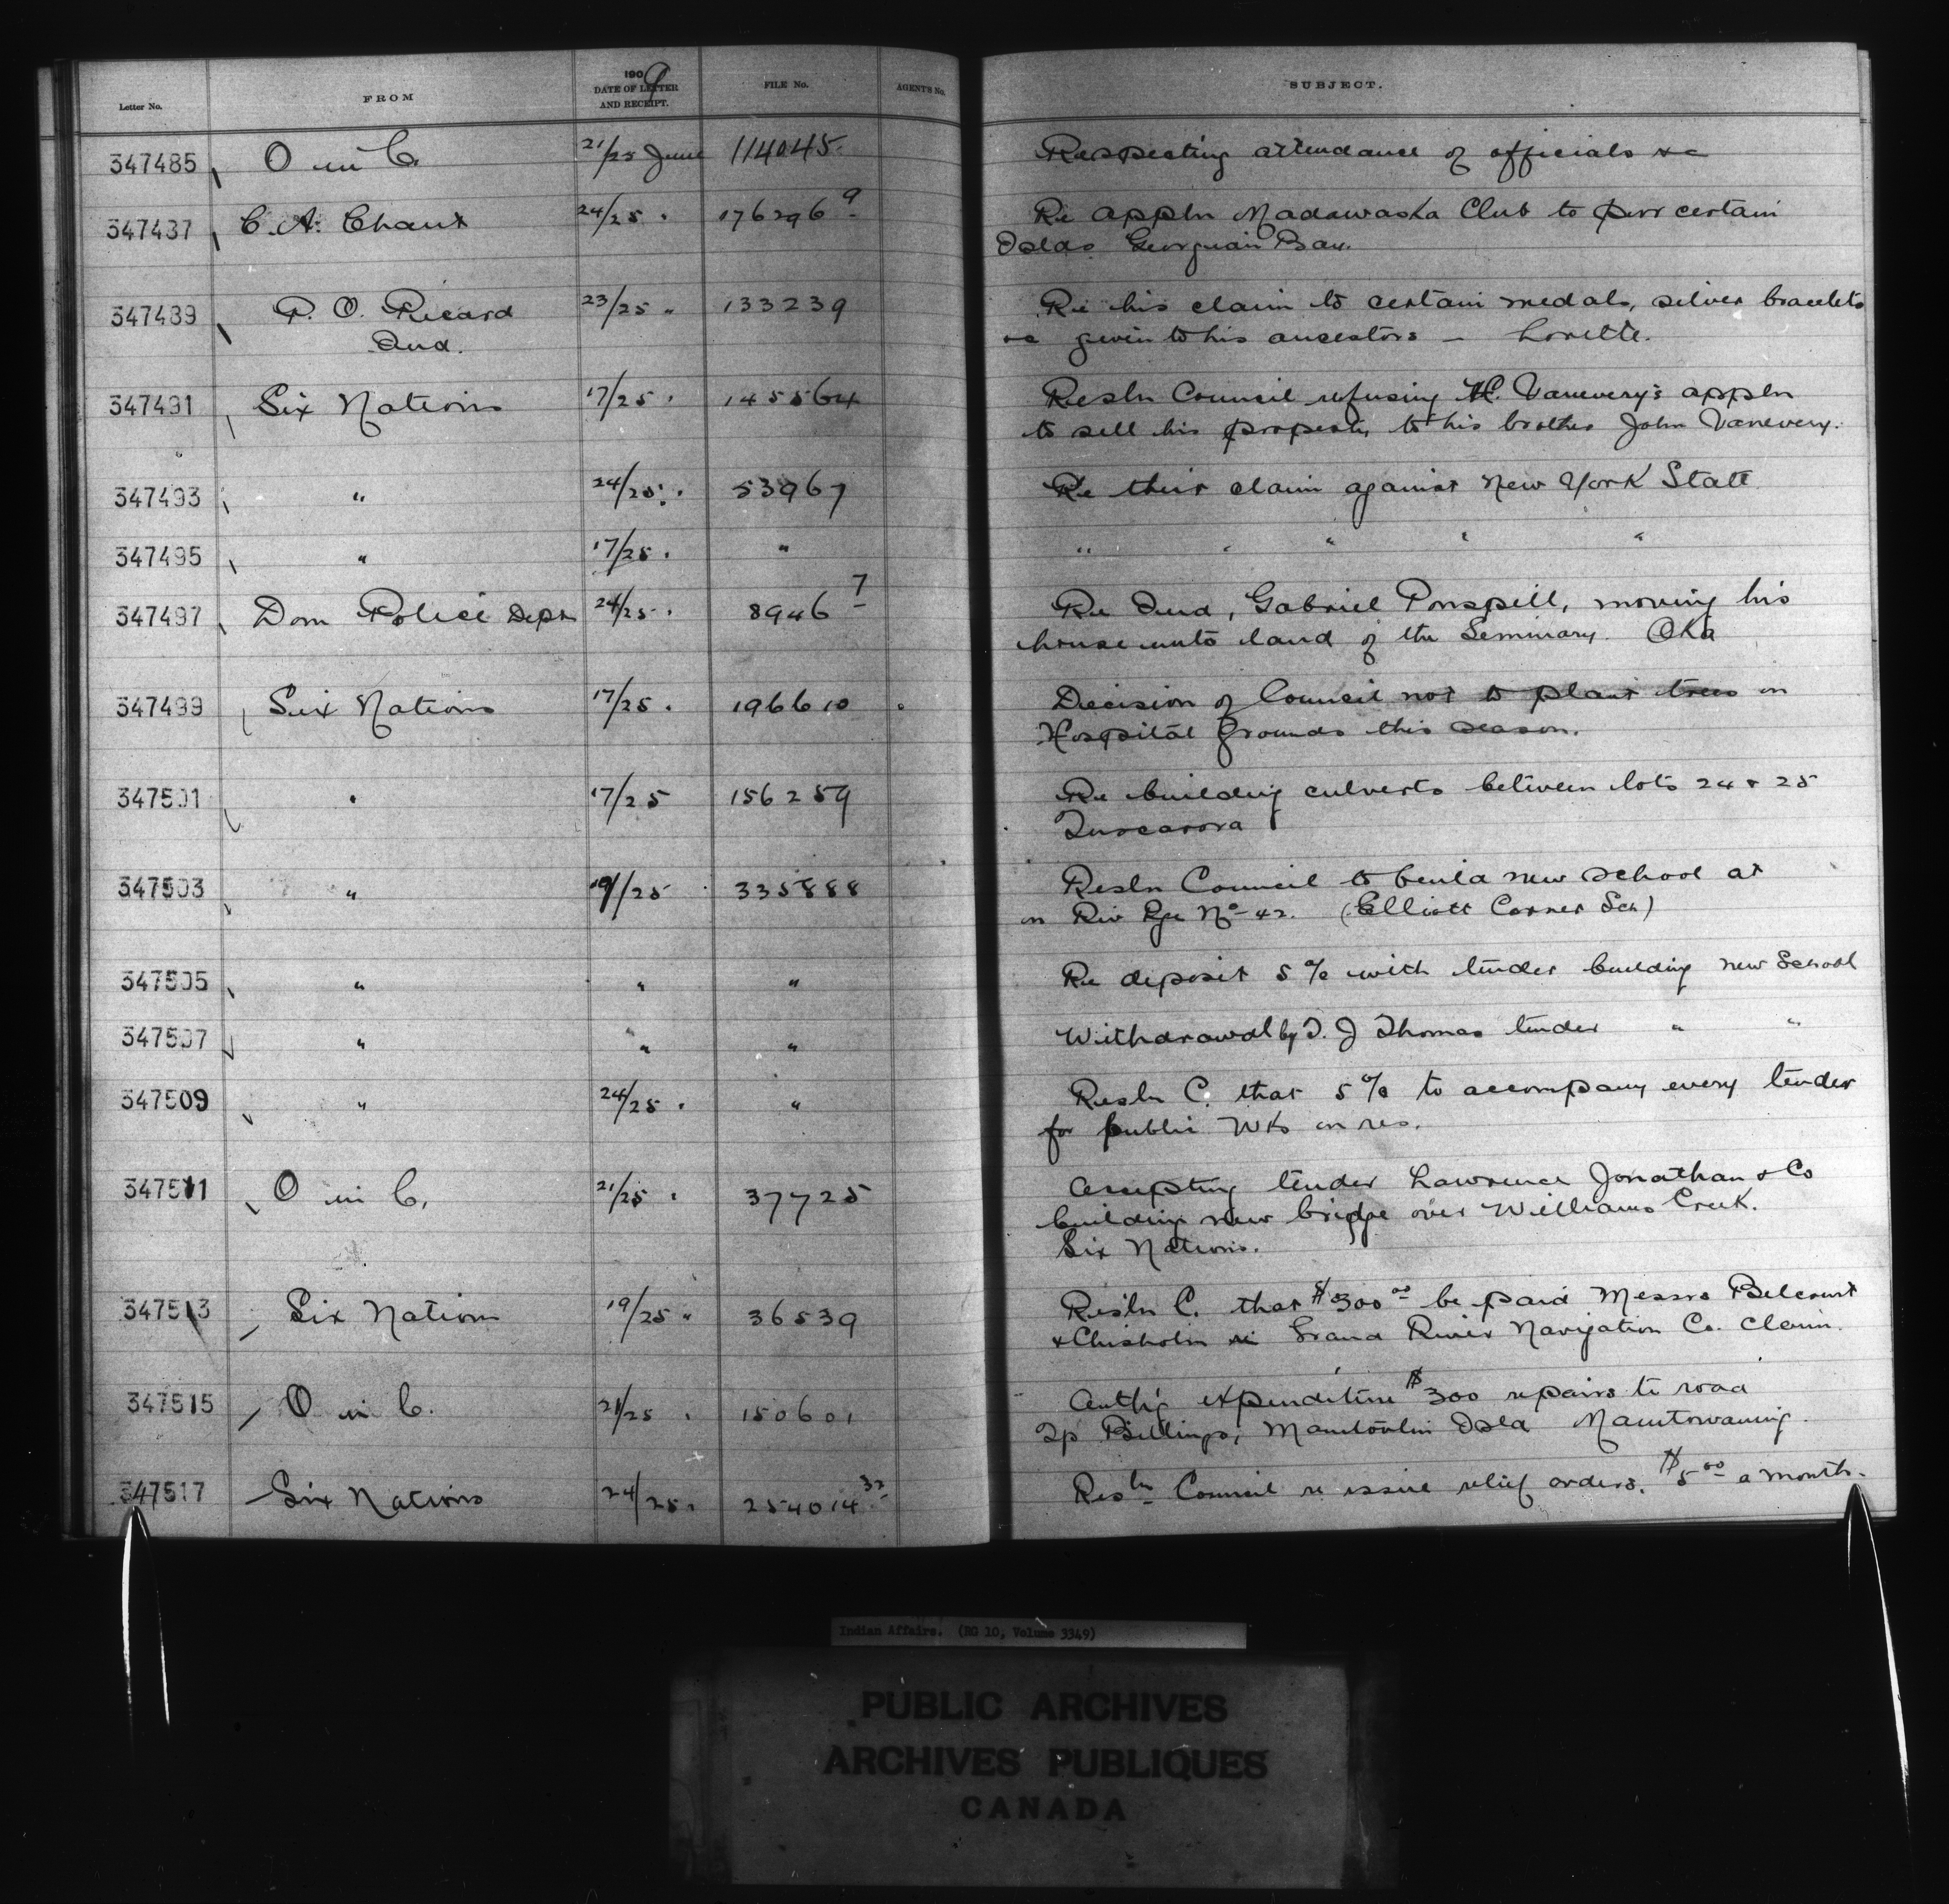 Letter No. FROM 1909 DATE OF LETTER AND RECEIPT. FILE No. AGENT'S No. SUBJECT.
347485 O in C. 21/25 June 114045. Respecting attendance of officials &c
347487 C. A. Chant 24/25 " 176296 9 Re appln Madawaska Club to pur certain
Islds Georgian Bay.
347489 P. O. Picard 23/25 " 133239 Re his claim to certain medals, silver bracelets
Ind. &c given to his ancestors – Lorette.
347491 Six Nations 17/25 " 145564 Resln Council refusing H. Vanevery's appln
to sell his property to his brother John Vanevery.
347493 " 24/25 " 53967 Re their claim against New York State
347495 " 17/25 " " " " " " "
347497 Dom Police Dept 24/25 " 8946 7 Re Ind, Gabriel Ponspill, moving his
house unto land of the Seminary. Oka
347499 Six Nations 17/25 " 196610 Decision of Council not to plant trees on
Hospital Grounds this season.
347501 " 17/25 156259 Re building culverts between lots 24 & 25
Tuscarora
347503 " 19/25 335888 Resln Council to build new school at
on Riv Rge No 42. (Elliott Corner Sch)
347505 " " " Re deposit 5% with tender building new School
347507 " " " Withdrawal by T. J Thomas tender " "
347509 " 24/25 " " Resln C. that 5% to accompany every tender
for public Wks on res.
347511 O in C. 21/25 " 37725 Accepting tender Lawrence Jonathan & Co
building new bridge over Williams Creek.
Six Nations.
347513 Six Nations 19/25 " 36539 Resln C. that $300 00 be paid Messrs Belcourt
& Chisholm re Grand River Navigation Co. Claim.
347515 O in C. 21/25 " 150601 Auth'g expenditure $300 repairs to road
Tp Billings, Manitoulin Isld Manitowaning.
347517 Six Nations 24/25 " 254014 32 Resln Council re issue relief orders. $5 00 a month.
Indian Affairs. (RG 10, Volume 3349)
PUBLIC ARCHIVES
ARCHIVES PUBLIQUES
CANADA